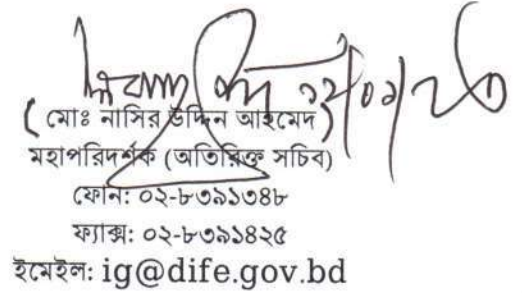 ১২/০১/২৩
( মোঃ নাসির উদ্দিন আহমেদ )
মহাপরিদর্শক (অতিরিক্ত সচিব)
ফোন: ০২-৮৩৯১৩৪৮
ফ্যাক্স: ০২-৮৩৯১৪২৫
ইমেইল: ig@dife.gov.bd